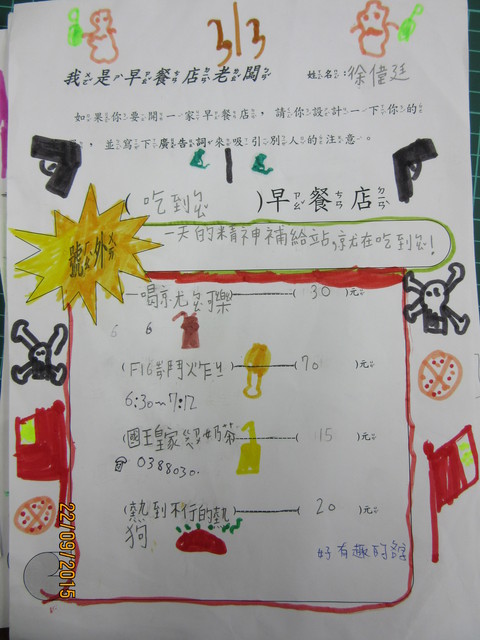 3/3
我是早餐店老闆
姓名:徐偉廷
如果你要開一家早餐店,請你設計一下你的
,並寫下廣告詞來吸引別人的注意。
(吃到ㄅㄠˇ)早餐店
號外
一天的精神補給站,就在吃到ㄅㄠˇ!
一喝就ㄅㄠˇ可樂 (30)元
6 6
(F16戰鬥火乍ㄐㄧ) (70)元
6:30~7:12
(國王皇家奶茶) (15)元
☎ 0388030.
(熱到不行的熱狗) (20)元
好有趣的
22/09/2015